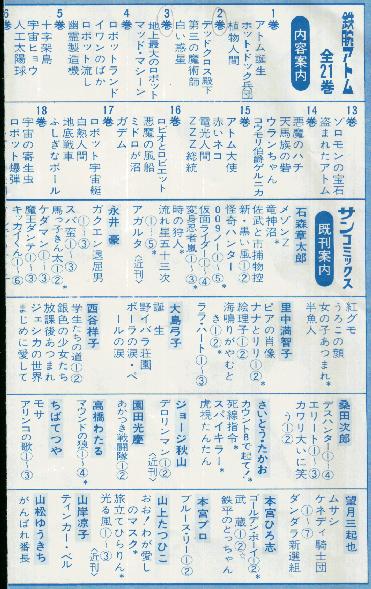 鉄腕アトム
全21巻
内容案内
1巻
アトム誕生
ホット・ドッグ兵団
植物人間
2巻
デッドクロス殿下
第三の魔術師
白い惑星
3巻
地上最大のロボット
マッド・マシーン
4巻
ロボットランド
イワンのばか
ロボット流し
幽霊製造機
5巻
十字架島
宇宙ヒョウ
人工太陽球
13巻
ゾロモンの宝石
盗まれたアトム
14巻
悪魔のハチ
天馬族の砦
ウランちゃん
コウモリ伯爵
ゲルニカ
15巻
アトム大使
赤いネコ
電光人間
ZZZ総統
16巻
ロビオとロビエット
悪魔の風船
ミドロが沼
ガデム
17巻
ロボット宇宙艇
白熱人間
地底戦車
ふしぎなボール
18巻
宇宙の寄生虫
ロボット爆弾
サンコミックス
既刊案内
石森章太郎
メゾンZ
竜神沼*
佐武と市捕物控
新・黒い風①②
怪奇ハンター
009ノ1①〜⑤
仮面ライダー①〜④
変身忍者嵐①〜③
時の狩人*
流れ星五十三次
アガルタ〈近刊〉
永井豪
ガクエン退屈男
①〜③
ズバ蛮①〜③
馬っ子きん太①②
ケダマン①②
魔王ダンテ①〜③
キッカイくん①〜⑥
紅グモ
うろこの顔
女の子あつまれ*
半魚人
里中満智子
ピアの肖像
ナナとリリ①②*
絵理子①②
海鳴りがやむとき①②
ララ・ハート①〜③
大島弓子
誕生
野イバラ荘園
ポーラの涙・ペールの涙
西谷祥子
学生たちの道①②
銀色の少女たち
放課後あつまれ
ジェシカの世界
まじめに愛して
桑田次郎
デスハンター①〜④
エリート①〜③
カワリ大いに笑う①②
さいとう・たかお
カウント8で起て!
死線指令*
スパイキラー*
虎視たんたん
ジョージ秋山
デロリンマン①②
〈近刊〉
園田光慶
あかつき戦闘隊①②
高橋わたる
マウンドの狼①〜④*
ちばてつや
モサ
アリンコの歌①〜③
望月三起也
ムサシ
ケネディ騎士団
①〜⑦
ダンダラ新選組
本宮ひろ志
ゴールデンボーイ①②*
武蔵①②
鉄平のとっちゃん
本宮プロ
ブルースリー①②
山上たつひこ
おお!わが愛しのマスク*
旅立てひらりん*
光る風①〜③
山岸凉子
〈近刊〉
ティンカー・ベル
山松ゆうきち
がんばれ番長